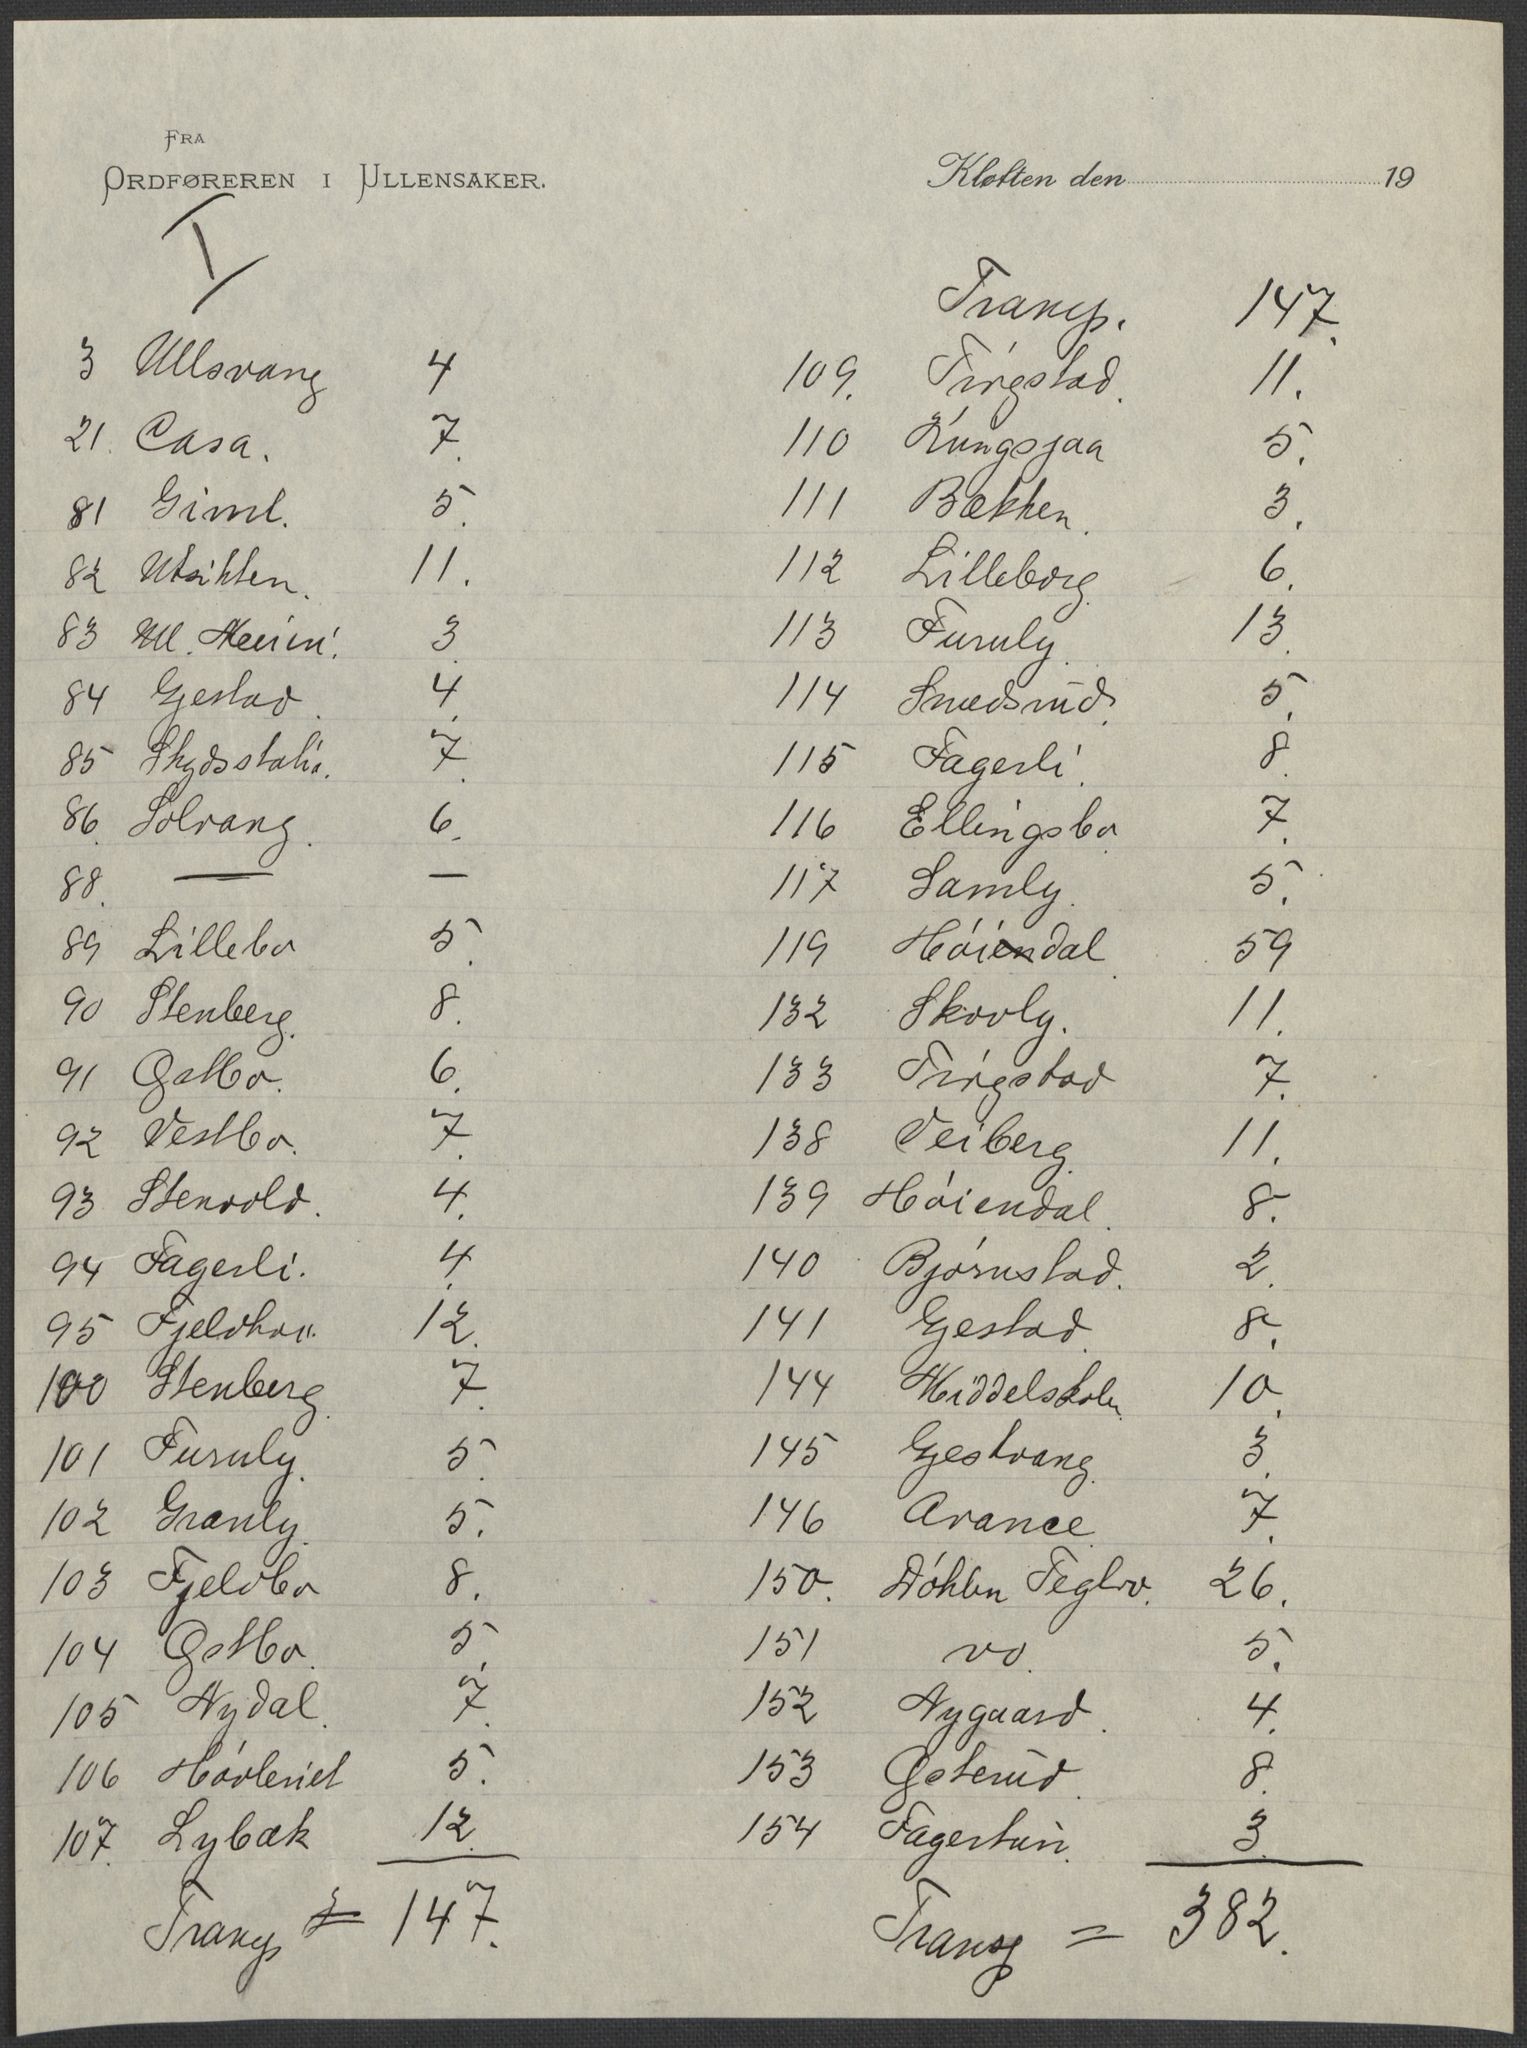 FRA
ORDFØREREN I ULLENSAKER.
Kløften den 19
I
3 Ullsvang 4
21. Casa. 7.
81 Giml. 5.
82 Utsikten. 11.
83 Ull. 3.
84 Gjestad. 4.
85 Skydsstatio. 7.
86. Solvang. 6.
88. — —
89 Lillebo 5.
90 Stenberg. 8.
91 Østbo. 6.
92 Vestbo. 7.
93 Stenvold. 4.
94 Fagerli. 4.
95 12.
100 Stenberg. 7.
101 Furuly. 5.
102 Granly. 5.
103 Fjeldbo 8.
104 Østbo. 5.
105 Nydal. 7.
106 Høvleriet 5.
107. Lybæk 12.
Transp = 147.
Transp. 147.
109. Tingstad. 11.
110 Kungsjaa 5.
111 Bækken. 3.
112 Lilleborg. 6.
113 Furuly. 13.
114 Smedsrud. 5.
115 Fagerli. 8.
116 Ellingsbo 7.
117 Samly. 5.
119 Høiendal 59
132 Skovly. 11.
133 Tingstad 7.
138 Veiberg. 11.
139 Høiendal. 8.
140 Bjørnstad. 2.
141 Gjestad. 8.
144 Middelskolen. 10.
145 Gjestvang. 3.
146 Avance. 7.
150. Døhlen Teglv. 26.
151 do. 5.
152 Nygaard. 4.
153 Østerud. 8.
154 Fagertun. 3.
Transp = 382.